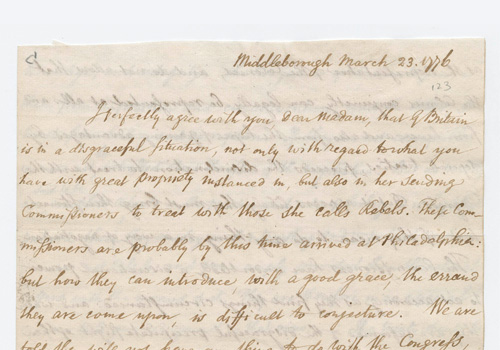 Middleborough March 23. 1776
123
I perfectly agree with you dear Madam, that G Britain
is in a disgraceful Situation, not only with regard to what you
have with great propriety instanced in, but also in her sending
Commissioners to treat with those she calls Rebels. These Com-
missioners are probably by this time arrived at Philadelphia:
but how they can introduce with a good grace, the errand
they are come upon, is difficult to conjecture. We are
told she will not have any thing to do with the Congress,